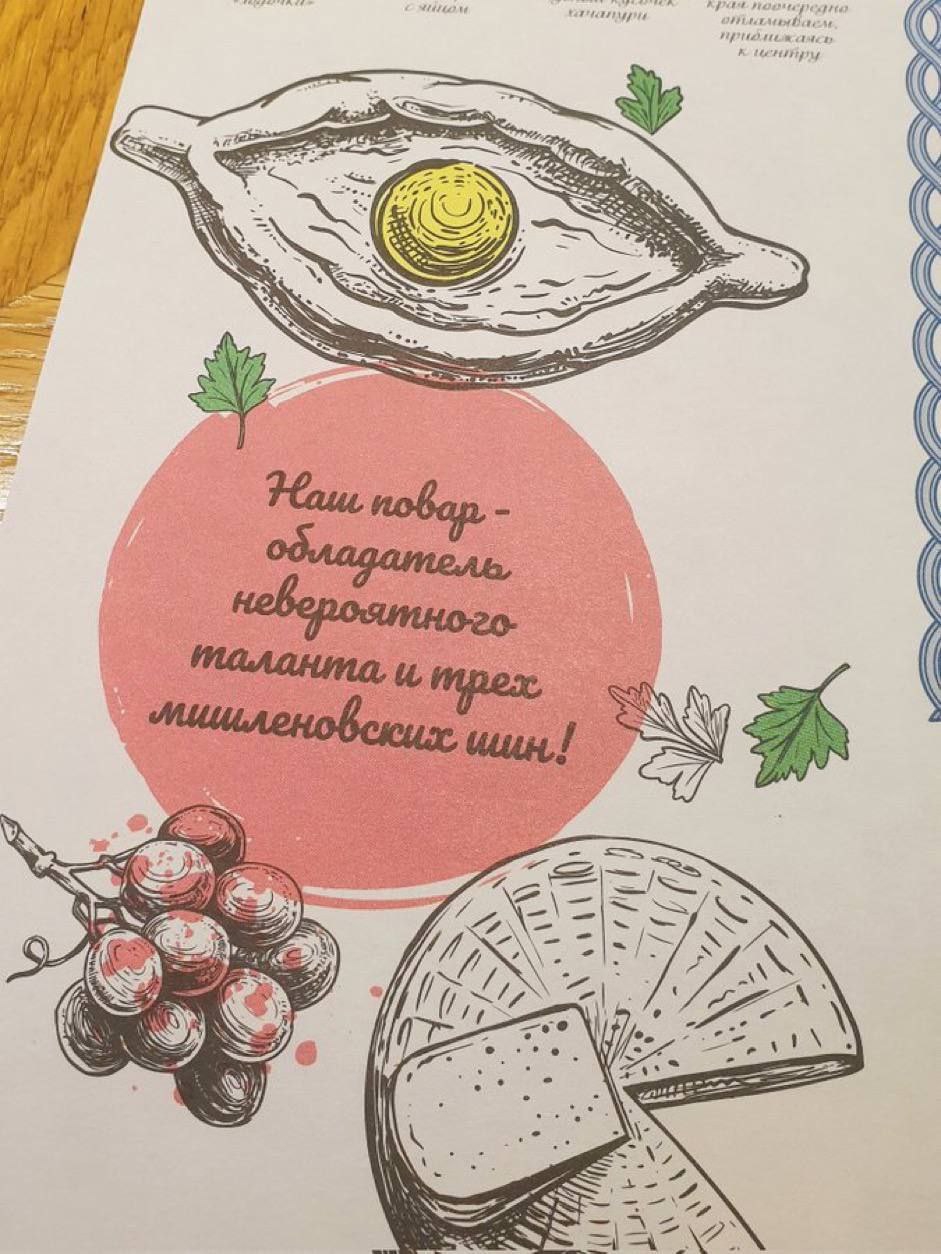 «лодочки»
с яйцом
хачапури
края поочередно
отламываем,
приближаясь
к центру
Наш повар -
обладатель
невероятного
таланта и трех
мишленовских шин!